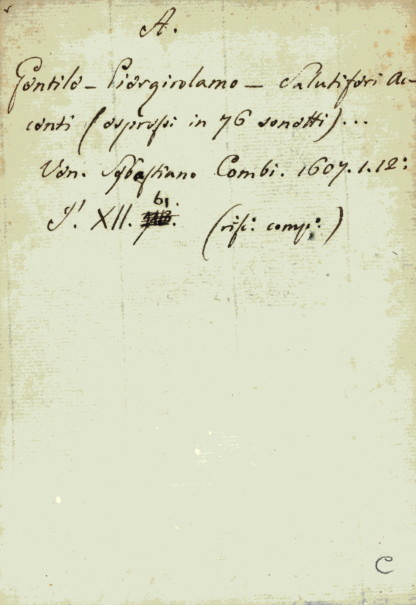 A.
Gentile – Piergirolamo – Salutiferi Ac-
centi (espressi in 76 sonetti)...
Ven. Sebastiano Combi. 1607. 1. 12:
61.
J'. XII. (risc: comp:)
C